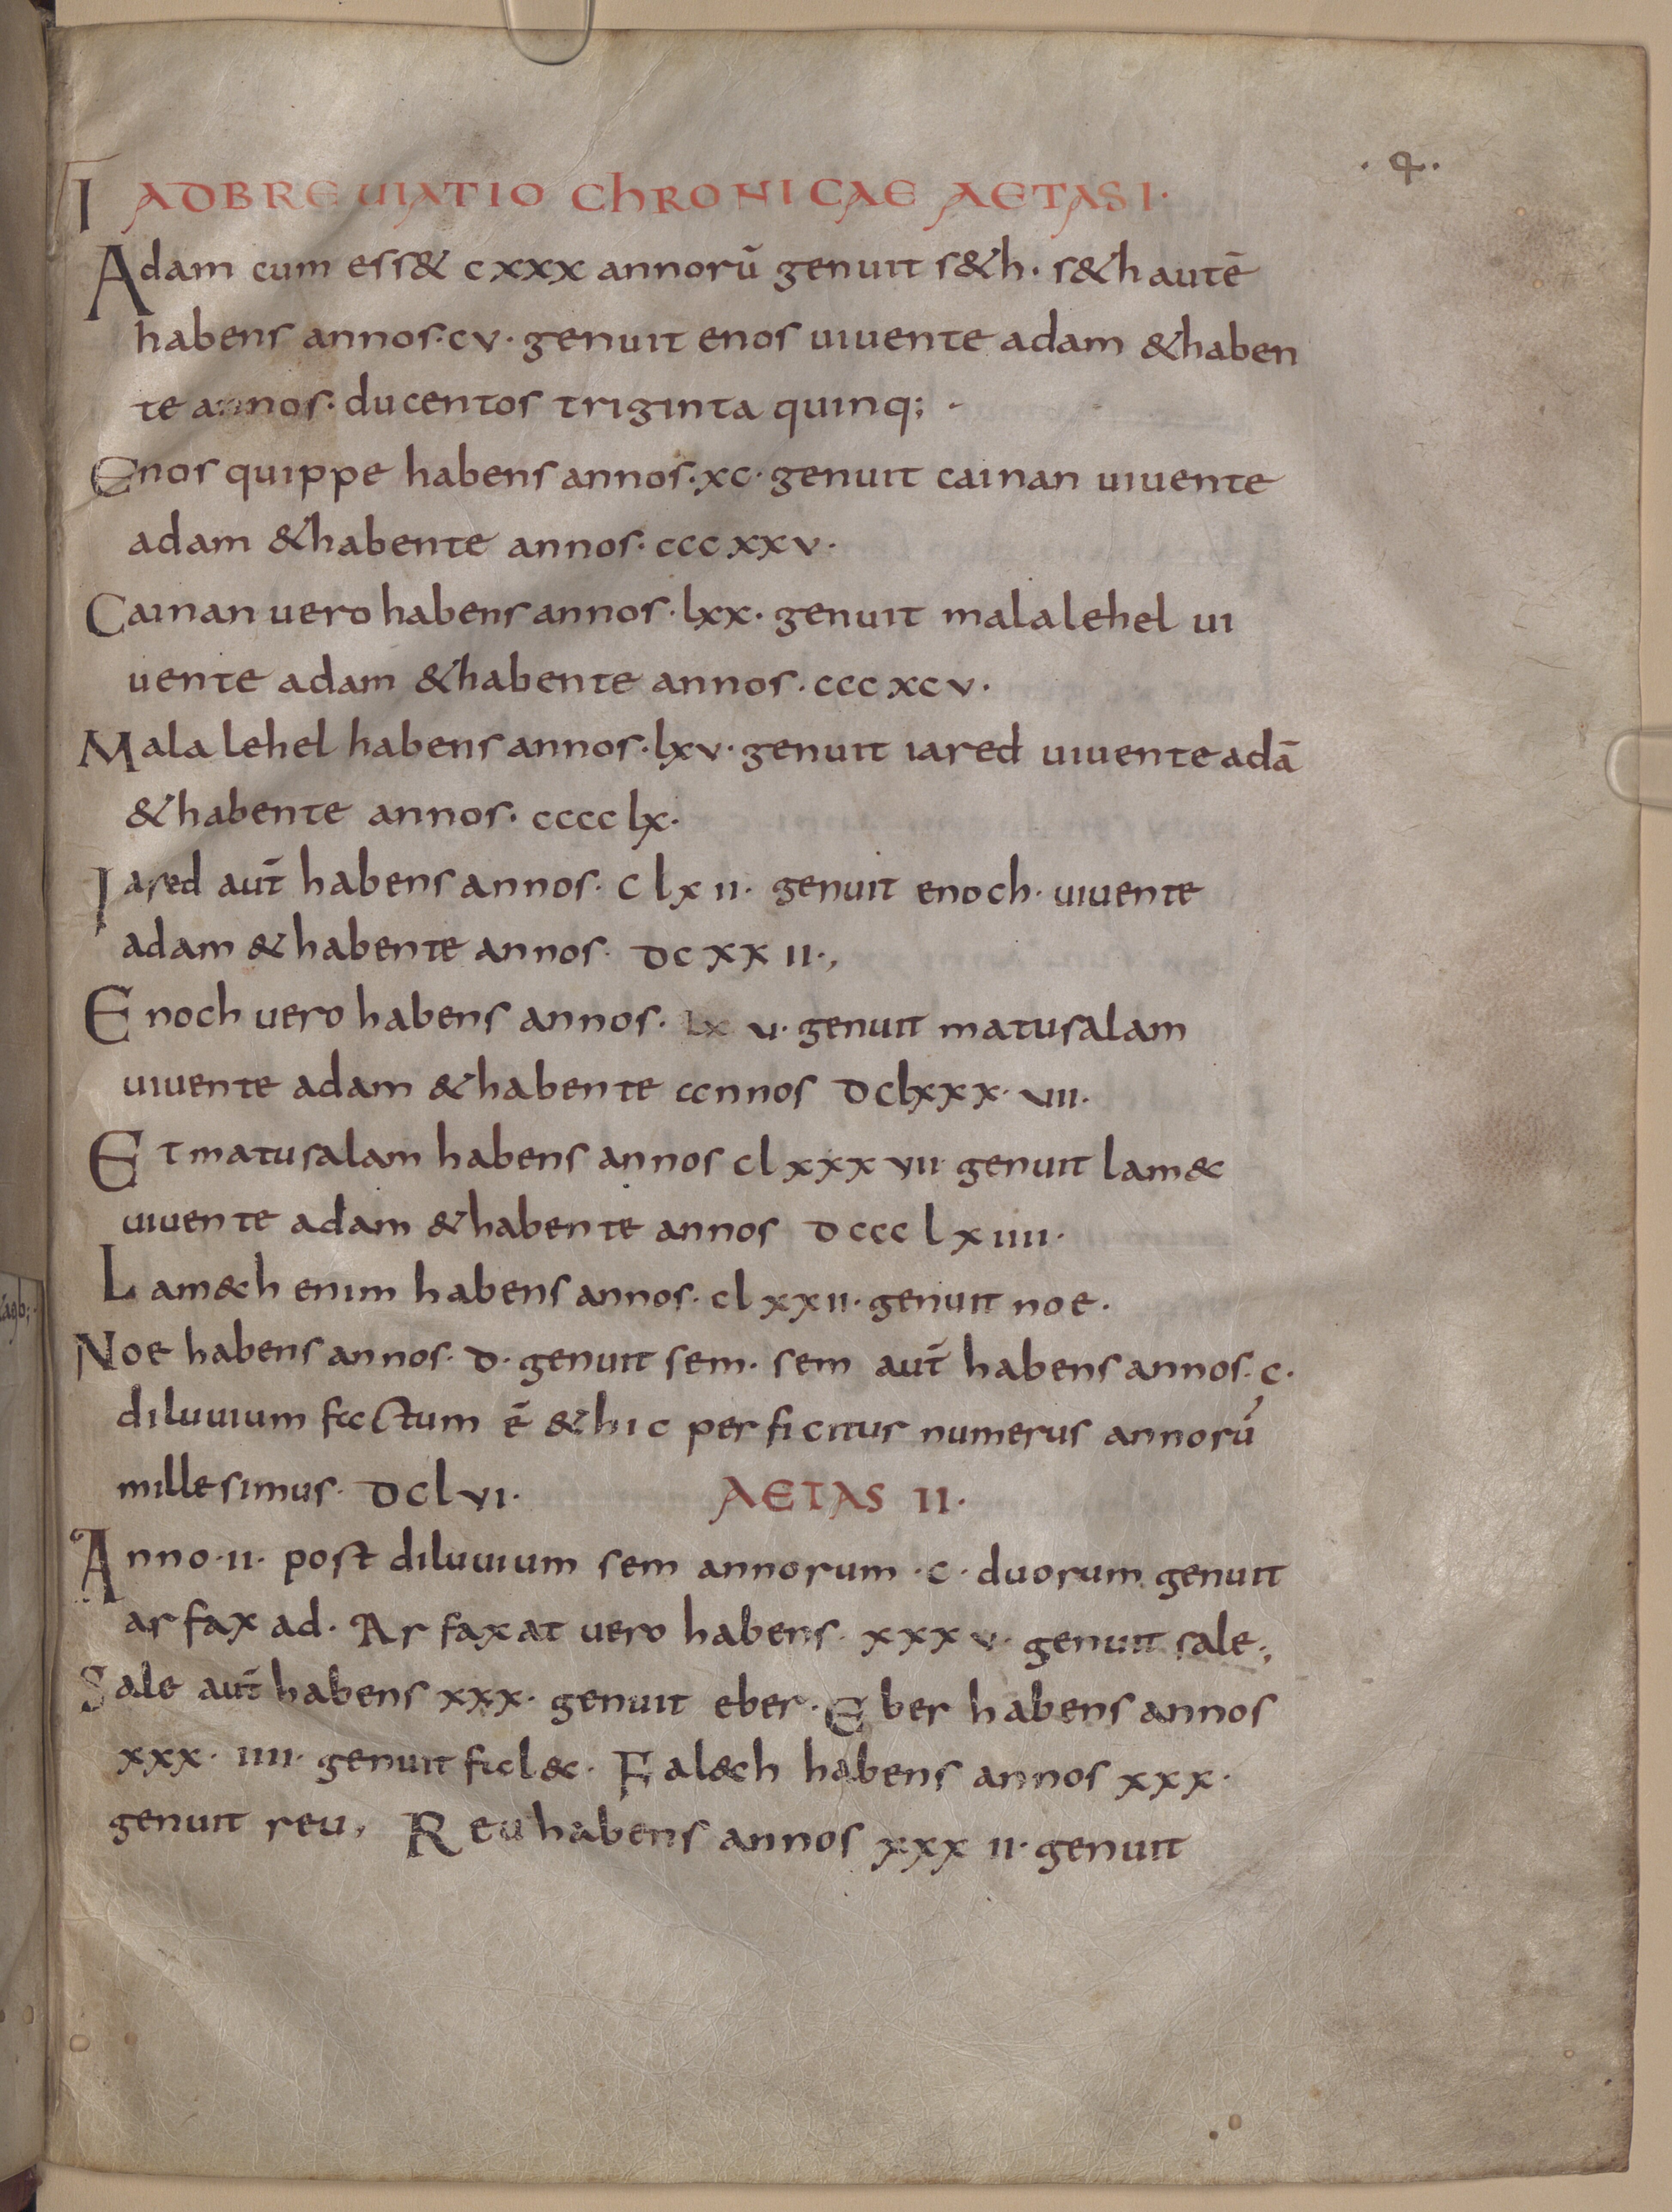 · 4 ·
I ADBREUIATIO ChRONICAE AETAS I·
Adam cum ess& cxxx annorū genuit s&h· s&h autē
habens annos·cv· genuit enos uiuente adam &haben
te annos· ducentos triginta quinq; ·
Enos quippe habens annos·xc· genuit cainan uiuente
adam &habente annos· cccxxv·
Cainan uero habens annos·lxx· genuit malalehel ui
uente adam &habente annos· cccxcv·
Malalehel habens annos·lxv· genuit iared uiuente adā
&habente annos· cccclx·
Iared aut̄ habens annos· clxii· genuit enoch· uiuente
adam &habente annos· dcxxii·,
Enoch uero habens annos· lxv· genuit matusalam
uiuente adam &habente annos dclxxx·vii·
Et matusalam habens annos clxxxvii genuit lam&c
uiuente adam &habente annos dccclxiiii·
Lam&ch enim habens annos· clxxii· genuit noe·
Noe habens annos· d· genuit sem· sem aut̄ habens annos· c·
diluuium factum ē &hic perficitur numerus annorū
millesimus· dclvi· AETAS II·
Anno·ii· post diluuium sem annorum ·c· duorum genuit
arfaxad· Arfaxat uero habens· xxxv· genuit sale·,
Sale aut̄ habens xxx· genuit eber· Eber habens annos
xxx· iiii· genuit fal&c· Fal&ch habens annos xxx·
genuit reu, Reu habens annos xxxii· genuit